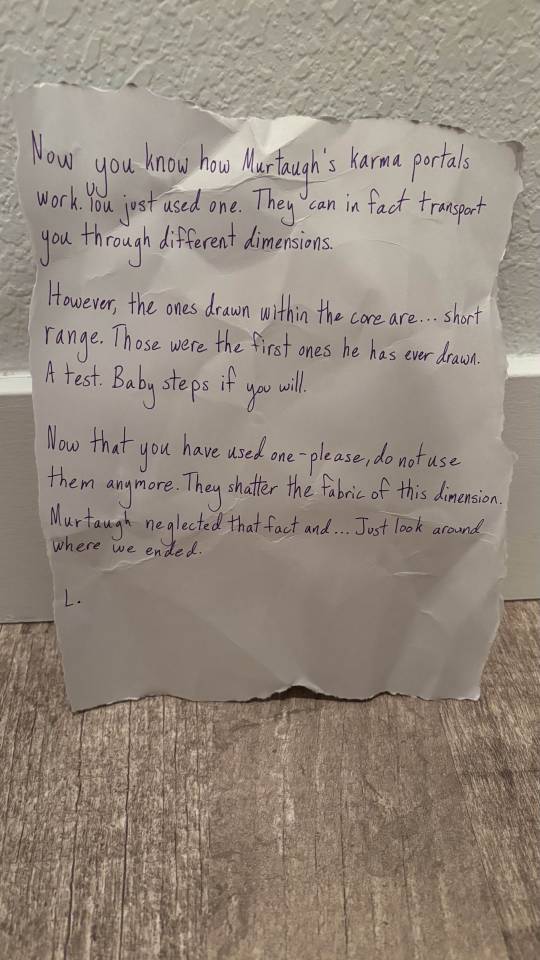 Now you know how Murtaugh's karma portals
work. You just used one. They can in fact transport
you through different dimensions.
However, the ones drawn within the core are... short
range. Those were the first ones he has ever drawn.
A test. Baby steps if you will.
Now that you have used one-please, do not use
them anymore. They shatter the fabric of this dimension.
Murtaugh neglected that fact and... Just look around
where we ended.
L.